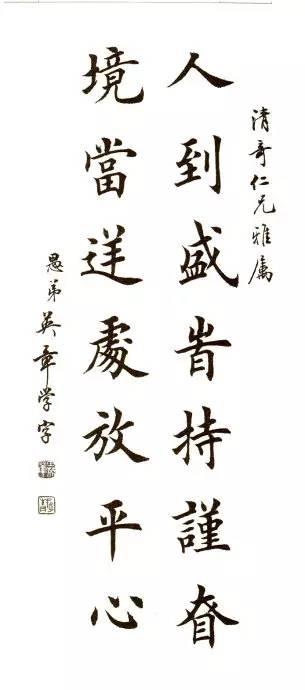 清奇仁兄雅属
人到盛旹持謹昚
境當逆處放平心
愚弟英章学字